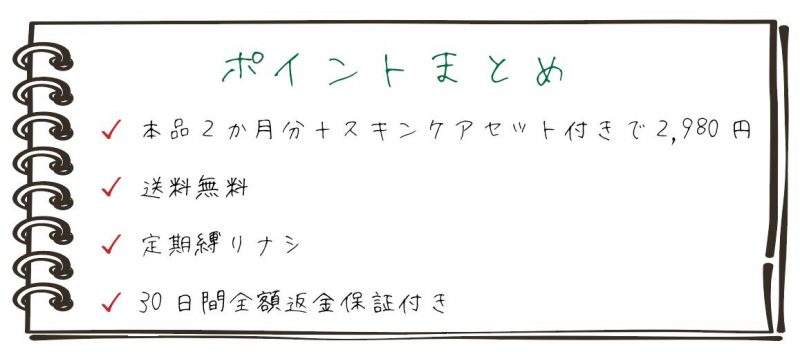 ポイントまとめ
本品2か月分+スキンケアセット付きで2,980円
送料無料
定期縛りナシ
30日間全額返金保証付き